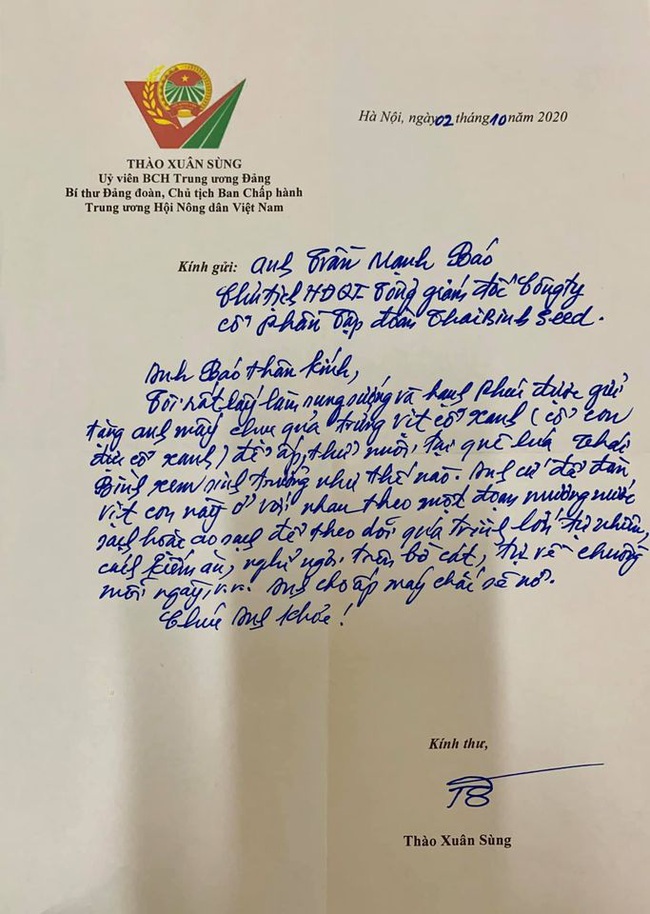 Hà Nội, ngày 02 tháng 10 năm 2020
THÀO XUÂN SÙNG
Uỷ viên BCH Trung ương Đảng
Bí thư Đảng đoàn, Chủ tịch Ban Chấp hành
Trung ương Hội Nông dân Việt Nam
Kính gửi: Anh Trần Mạnh Báo
Chủ tịch HĐQT Tổng giám đốc Công ty
cổ phần Tập đoàn ThaiBinh Seed.
Anh Báo thân kính,
Tôi rất lấy làm sung sướng và hạnh phúc được gửi
tặng anh mấy chục quả trứng vịt cổ xanh (cổ con
đực cổ xanh) để ấp, thử nuôi, tại quê lúa Thái
Bình xem sinh trưởng như thế nào. Anh cứ để đàn
vịt con này ở với nhau theo một đoạn mương nước
sạch hoặc ao sạch để theo dõi quá trình lớn tự nhiên,
cách kiếm ăn, nghỉ ngơi trên bờ cát, tự về chuồng
mỗi ngày, v.v. Anh cho ấp máy chắc sẽ nở.
Chúc Anh khỏe!
Kính thư,
Thào Xuân Sùng